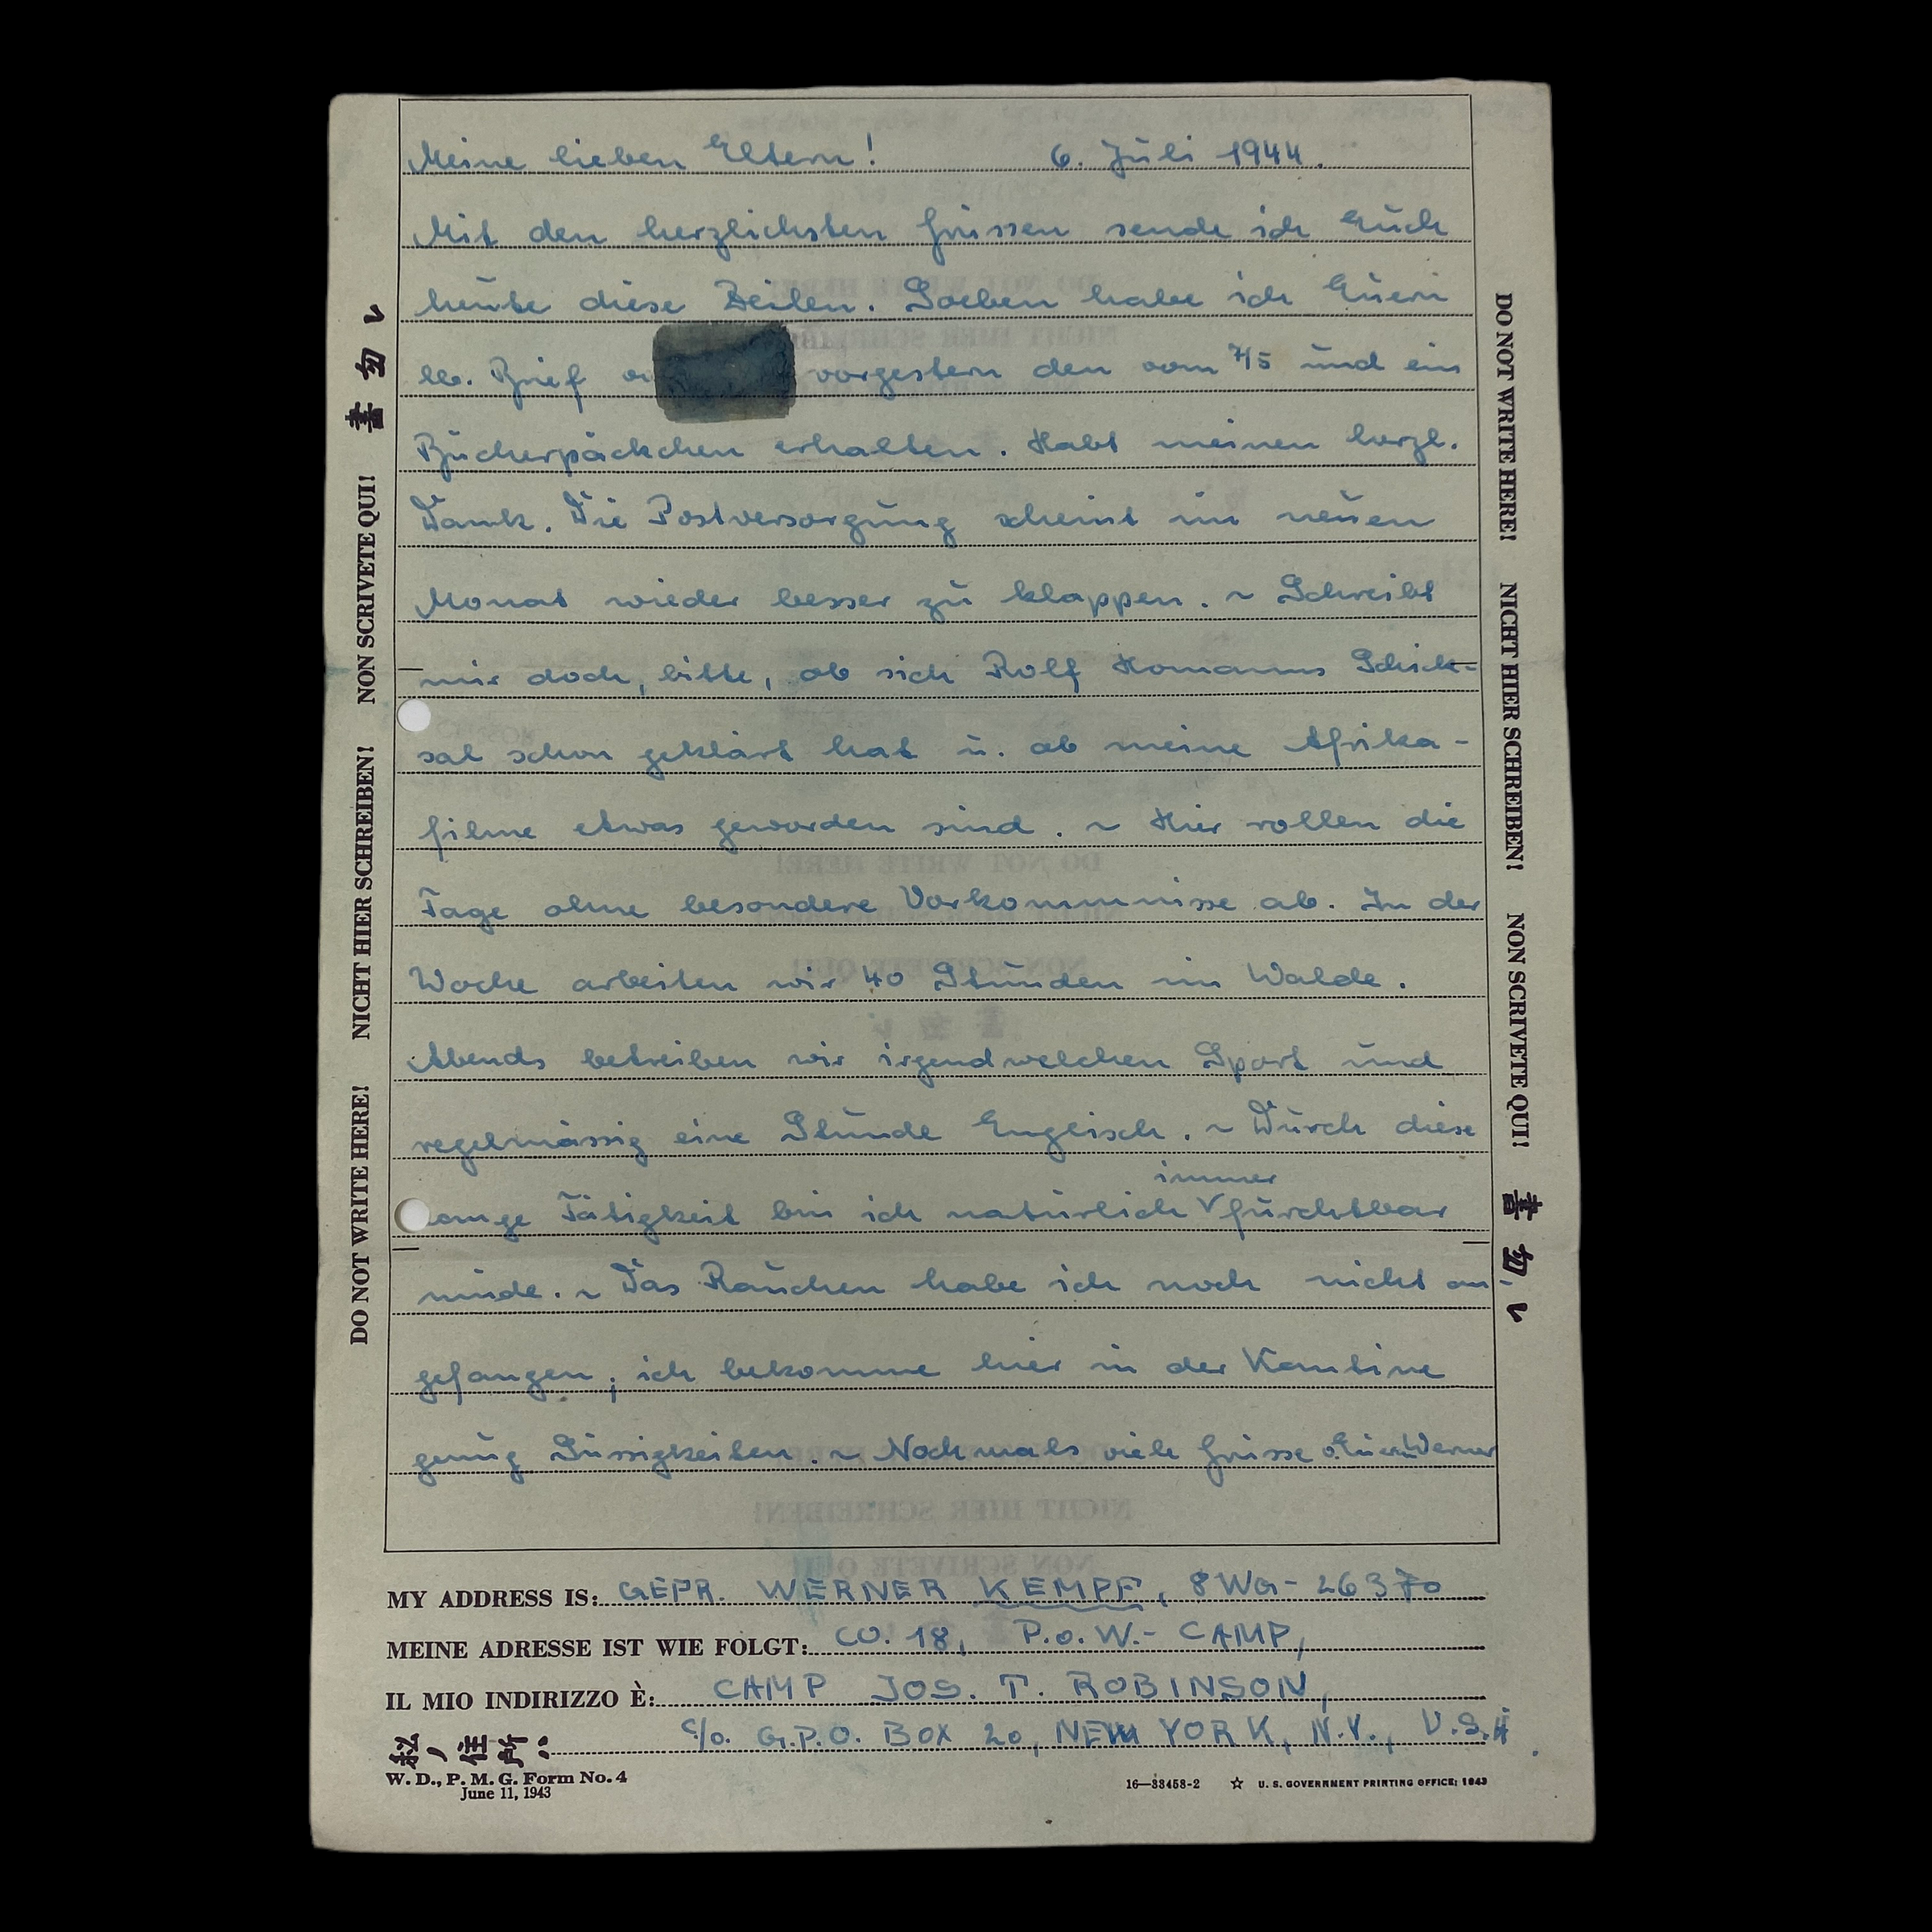 Meine lieben Eltern! 6. Juli 1944.
Mit den herzlichsten Grüssen sende ich Euch
heute diese Zeilen. Soeben habe ich Euern
lb. Brief vorgestern den vom 7/5 und ein
Bücherpäckchen erhalten. Habt meinen herzl.
Dank. Die Postversorgung scheint im neuen
Monat wieder besser zu klappen. ~ Schreibt
mir doch, bitte, ob sich Rolf Homanns Schick-
sal schon geklärt hat u. ob meine Afrika-
filme etwas geworden sind. ~ Hier rollen die
Tage ohne besondere Vorkommnisse ab. In der
Woche arbeiten wir 40 Stunden im Walde.
Abends betreiben wir irgendwelchen Sport und
regelmässig eine Stunde Englisch. ~ Durch diese
immer
lange Tätigkeit bin ich natürlich furchtbar
müde. ~ Das Rauchen habe ich noch nicht an-
gefangen; ich bekomme hier in der Kantine
genug Süssigkeiten. ~ Nochmals viele Grüsse v. Euerm Werner
MY ADDRESS IS: GEFR. WERNER KEMPF, 8WG-26370
MEINE ADRESSE IST WIE FOLGT: CO. 18, P.o.W.- CAMP,
IL MIO INDIRIZZO È: CAMP JOS. T. ROBINSON,
私ノ住所: c/o. G.P.O. BOX 20, NEW YORK, N.Y., U.S.A.
W. D., P. M. G. Form No. 4
June 11, 1943
16—33458-2 ☆ U. S. GOVERNMENT PRINTING OFFICE: 1943
DO NOT WRITE HERE! NICHT HIER SCHREIBEN! NON SCRIVETE QUI! 書勿レ
DO NOT WRITE HERE! NICHT HIER SCHREIBEN! NON SCRIVETE QUI! 書勿レ